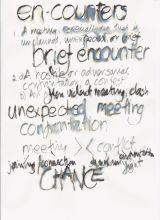 en-counters
1. A meeting, especially one that is
unplanned, unexpected or brief
brief encounter
2. a A hostile or adversarial
confrontation, a contest
b) An violent meeting, clash
unexpected meeting
confrontation
meeting >< conflict
joining connection
CHANCE